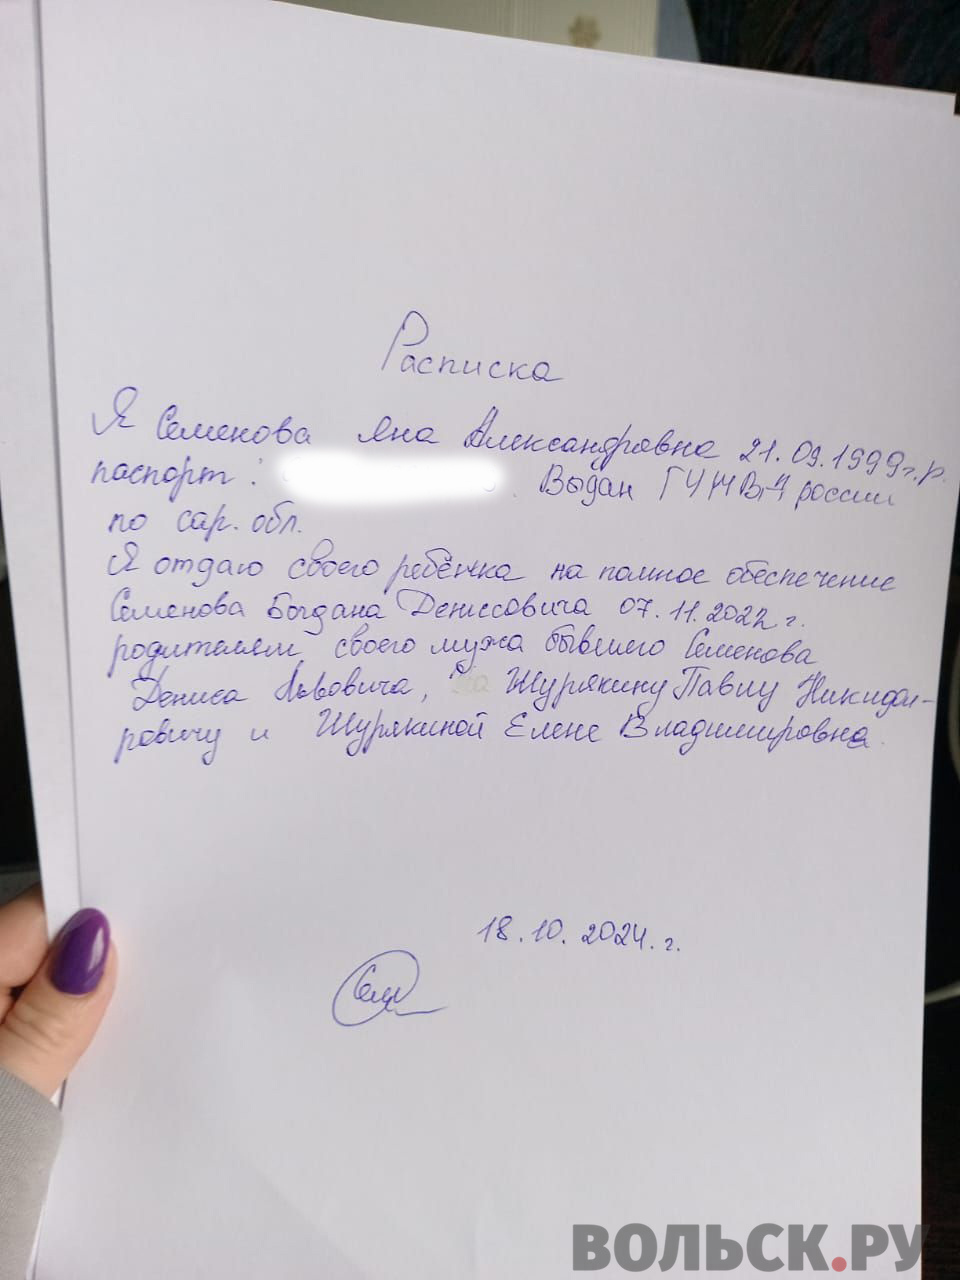 Расписка
Я Семенова Яна Александровна 21.09.1999г.р.
паспорт: . Выдан ГУМВД россии
по сар. обл.
Я отдаю своего ребёнка на полное обеспечение
Семенова Богдана Денисовича 07.11.2022 г.
родителям своего мужа бывшего Семенова
Дениса Львовича, Журякину Павлу Никида-
ровичу и Журякиной Елене Владимировне.
18.10.2024.г.
Сем
ВОЛЬСК.РУ